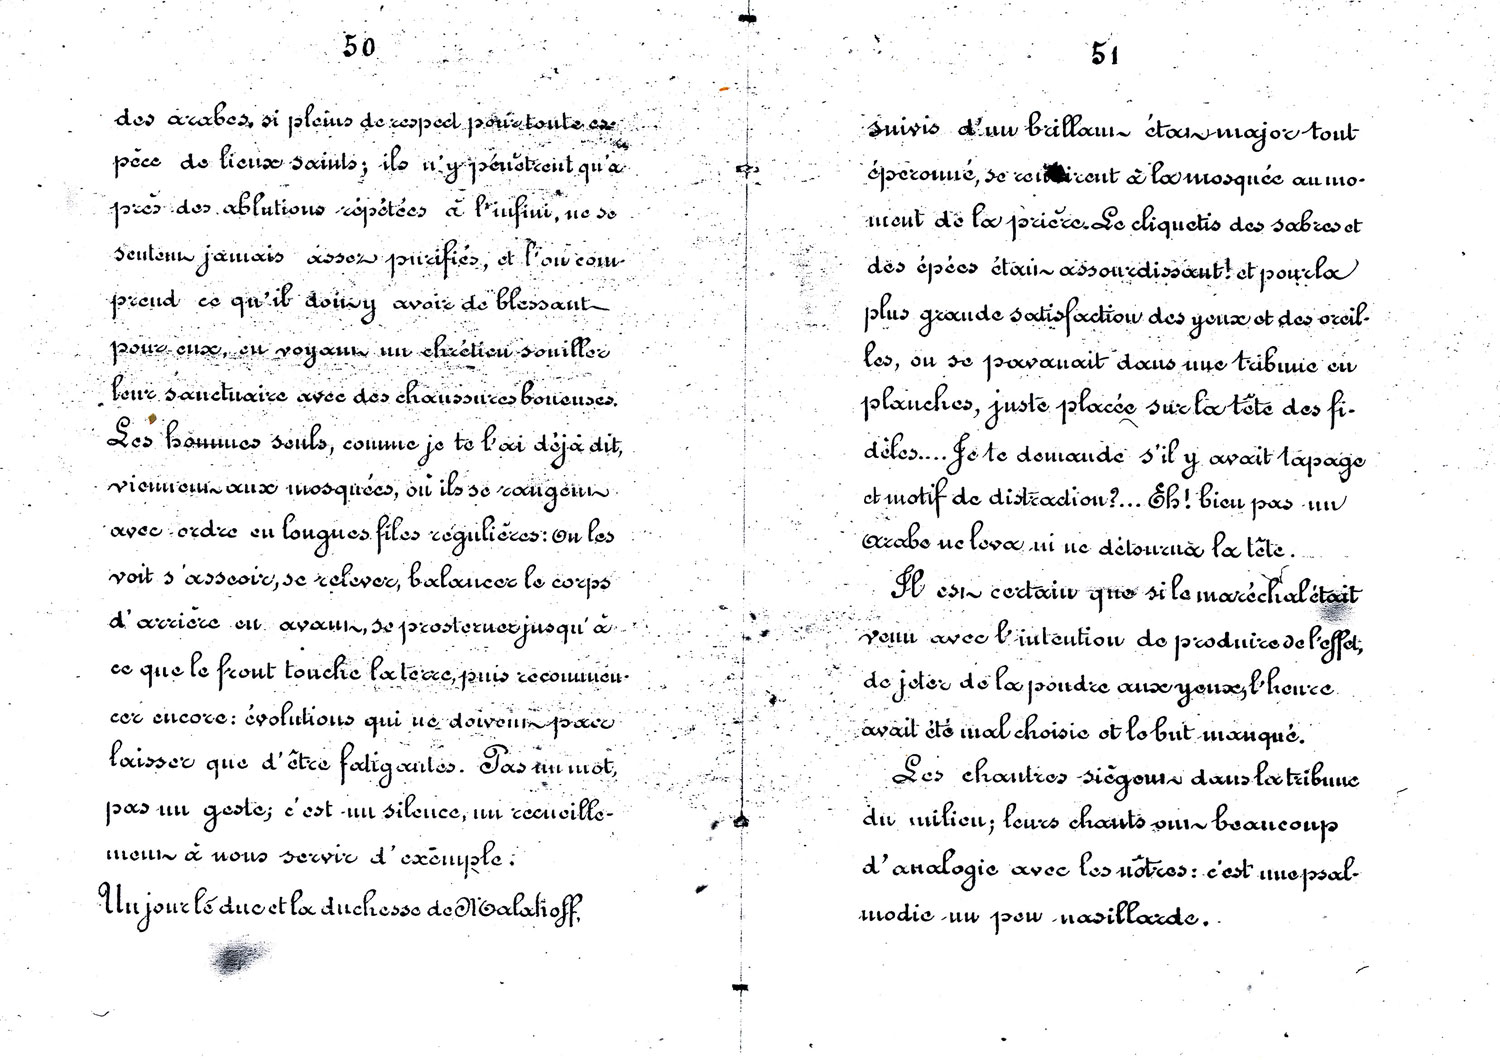 50
des arabes, si pleins de respect pour toute es-
pèce de lieux saints; ils n'y pénètrent qu'a-
près des ablutions répétées à l'infini, ne se
sentent jamais assez purifiés, et l'on com-
prend ce qu'il doit y avoir de blessant
pour eux, en voyant un chrétien souiller
leur sanctuaire avec des chaussures boueuses.
Les hommes seuls, comme je te l'ai déjà dit,
viennent aux mosquées, où ils se rangent
avec ordre en longues files régulières: On les
voit s'asseoir, se relever, balancer le corps
d'arrière en avant, se prosterner jusqu'à
ce que le front touche la terre, puis recommen-
cer encore: évolutions qui ne doivent pas
laisser que d'être fatigantes. Pas un mot,
pas un geste; c'est un silence, un recueille-
ment à nous servir d'exemple.
Un jour le duc et la duchesse de Malakoff,
51
suivis d'un brillant état major tout
éperonné, se rendirent à la mosquée au mo-
ment de la prière. Le cliquetis des sabres et
des épées était assourdissant! et pour la
plus grande satisfaction des yeux et des oreil-
les, on se pavanait dans une tribune en
planches, juste placée sur la tête des fi-
dèles.... Je te demande s'il y avait tapage
et motif de distraction?... Eh! bien pas un
Arabe ne leva ni ne détourna la tête.
Il est certain que si le maréchal était
venu avec l'intention de produire de l'effet,
de jeter de la poudre aux yeux, l'heure
avait été mal choisie et le but manqué.
Les chantres siègent dans la tribune
du milieu; leurs chants ont beaucoup
d'analogie avec les nôtres: c'est une psal-
modie un peu nasillarde.